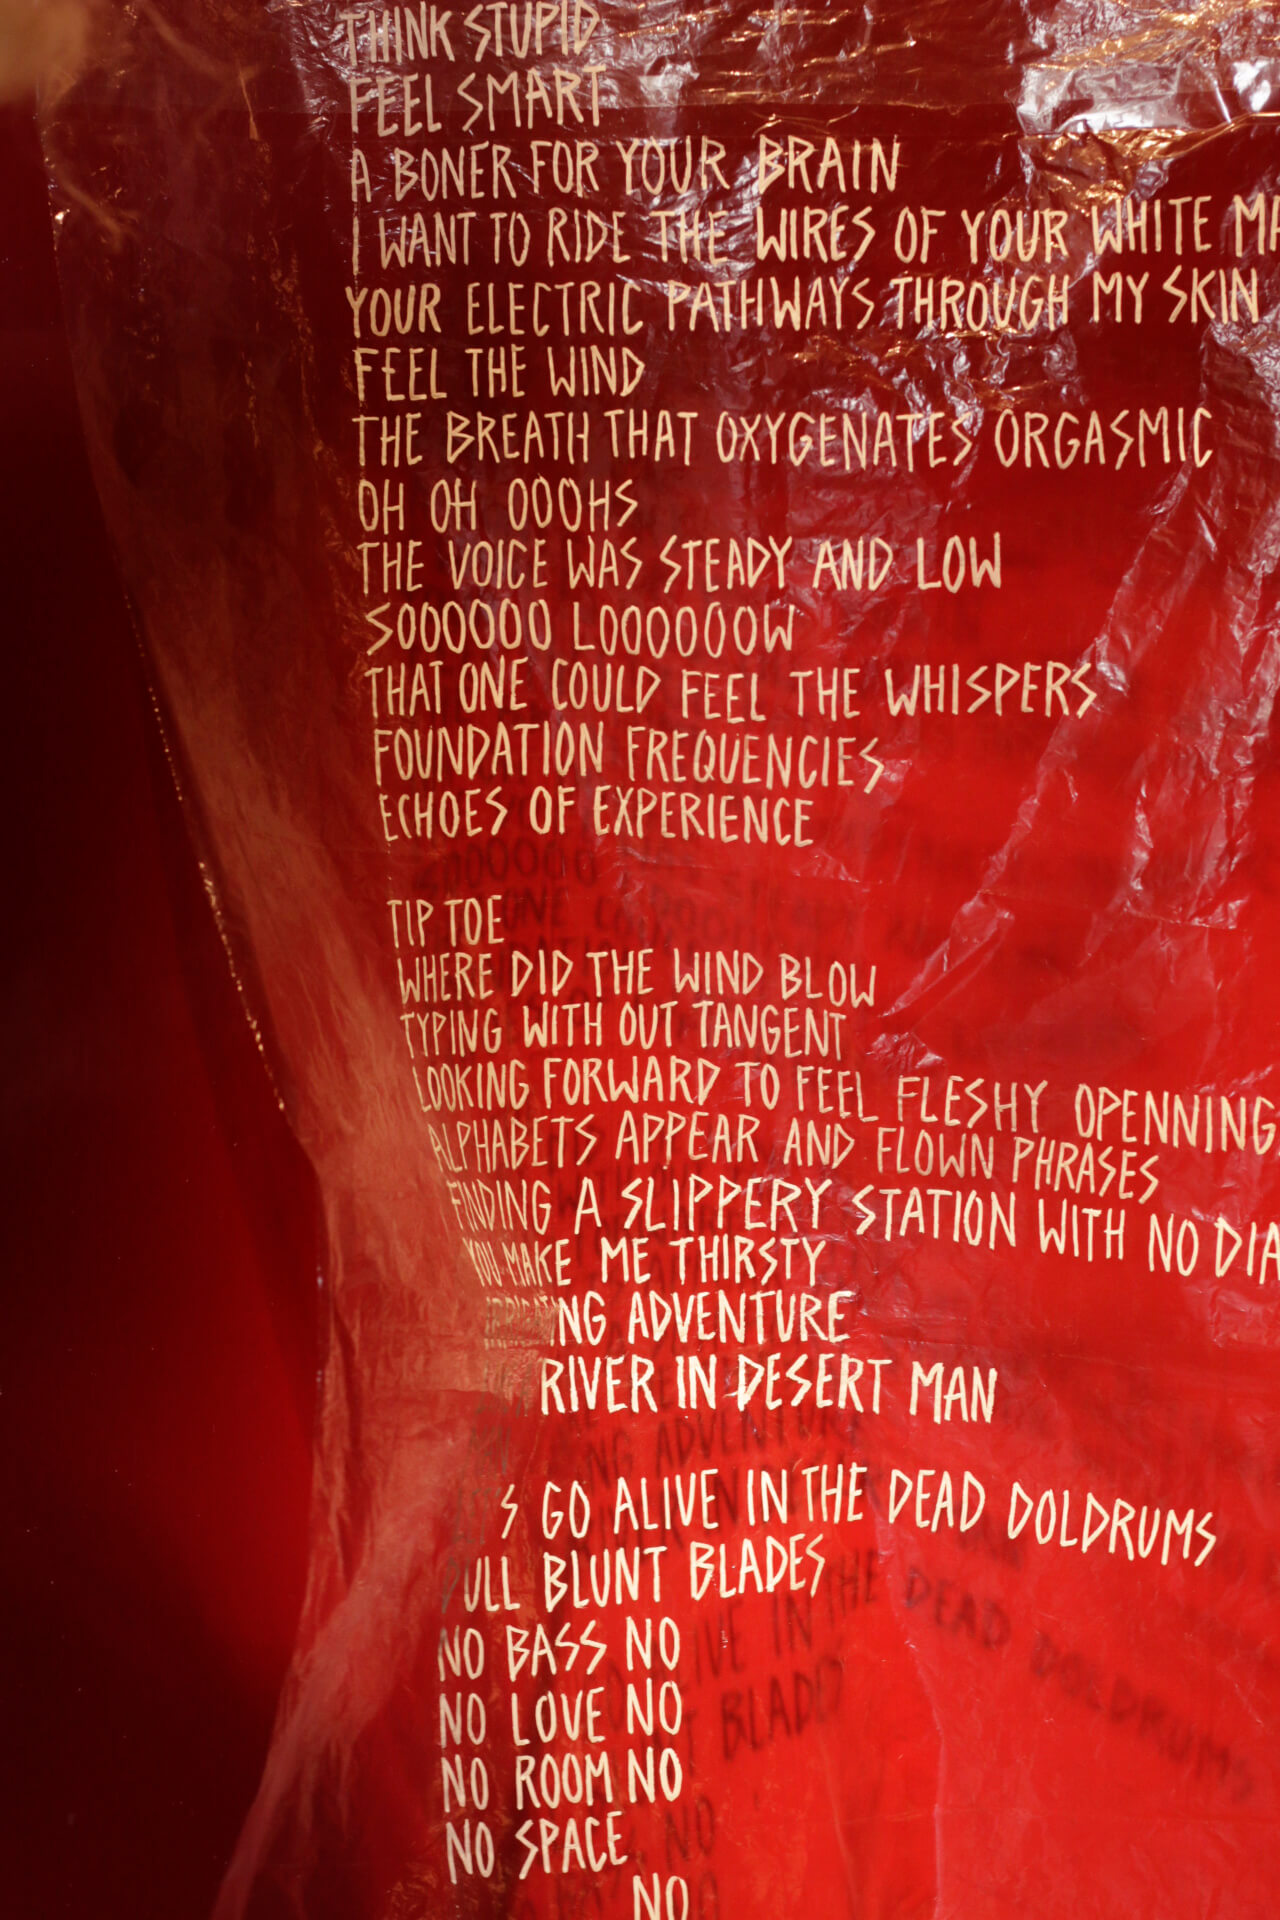 THINK STUPID
FEEL SMART
A BONER FOR YOUR BRAIN
I WANT TO RIDE THE WIRES OF YOUR WHITE
YOUR ELECTRIC PATHWAYS THROUGH MY SKIN
FEEL THE WIND
THE BREATH THAT OXYGENATES ORGASMIC
OH OH OOOHS
THE VOICE WAS STEADY AND LOW
SOOOOOO LOOOOOOW
THAT ONE COULD FEEL THE WHISPERS
FOUNDATION FREQUENCIES
ECHOES OF EXPERIENCE
TIP TOE
WHERE DID THE WIND BLOW
TYPING WITH OUT TANGENT
LOOKING FORWARD TO FEEL FLESHY OPENNING
ALPHABETS APPEAR AND FLOWN PHRASES
FINDING A SLIPPERY STATION WITH NO
YOU MAKE ME THIRSTY
ADVENTURE
RIVER IN DESERT MAN
LET'S GO ALIVE IN THE DEAD DOLDRUMS
DULL BLUNT BLADES
NO BASS NO
NO LOVE NO
NO ROOM NO
NO SPACE
NO